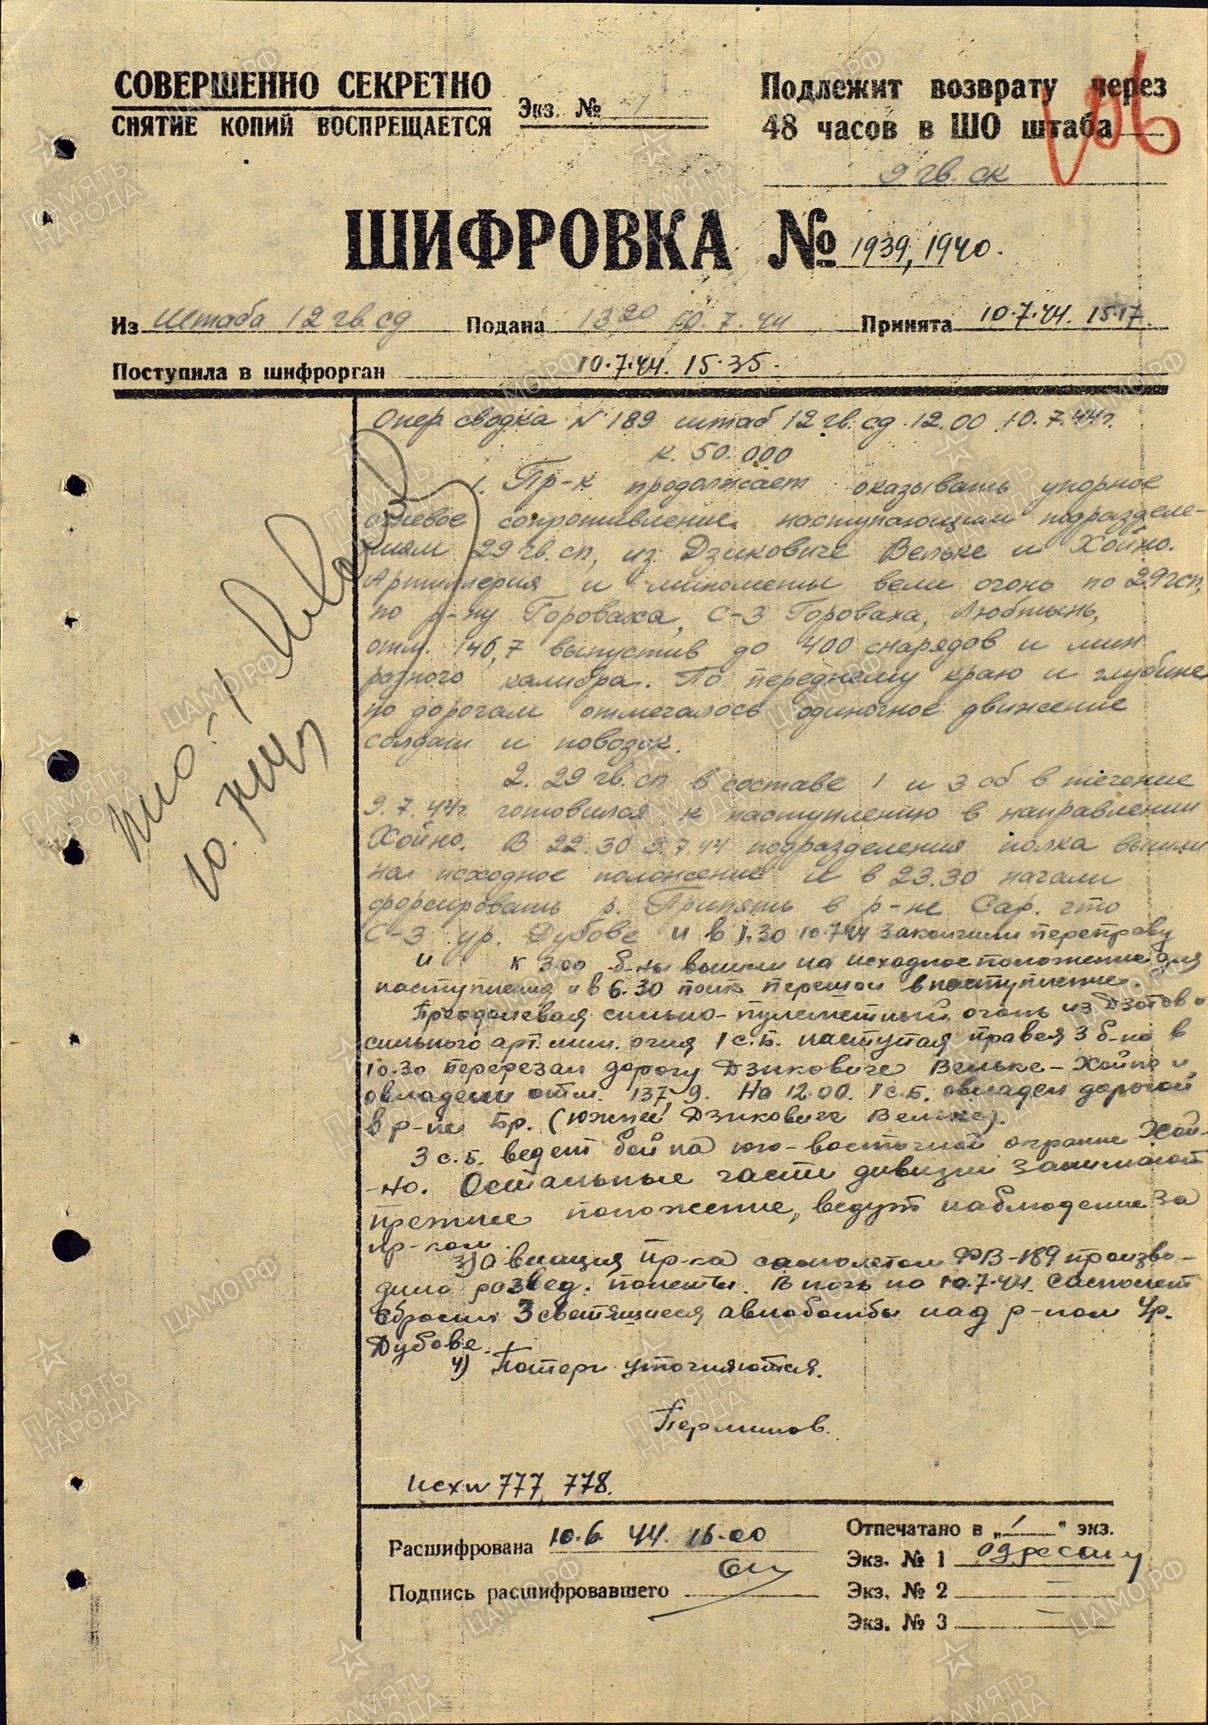 СОВЕРШЕННО СЕКРЕТНО
СНЯТИЕ КОПИЙ ВОСПРЕЩАЕТСЯ
Экз. № 1
Подлежит возврату через
48 часов в ШО штаба
9 гв. ск
106
ШИФРОВКА № 1939, 1940.
Из штаба 12 гв. сд Подана 13 20 10.7.44 Принята 10.7.44. 15.17
Поступила в шифрорган 10.7.44. 15.35.
Опер сводка N 189 штаб 12 гв. сд 12.00 10.7.44г.
к. 50.000
1. Пр-к продолжает оказывать упорное
огневое сопротивление наступающим подразделе-
ниям 29 гв. сп, из Дзиковиче Вельке и Хойно.
Артиллерия и минометы вели огонь по 29 гсп,
по р-ну Гороваха, С-З Гороваха, Любтынь,
отм. 146,7 выпустив до 400 снарядов и мин
разного калибра. По переднему краю и глубине
по дорогам отмечалось одиночное движение
солдат и повозок.
2. 29 гв. сп в составе 1 и 3 сб в течение
9.7.44г. готовился к наступлению в направлении
Хойно. В 22.30 9.7.44 подразделения полка вышли
на исходное положение и в 23.30 начали
форсировать р. Припять в р-не Сар. что
С-З ур. Дубове и в 1.30 10.7.44 закончили переправу
и к 3.00 б-ны вышли на исходное положение для
наступления и в 6.30 полк перешол в наступление
Преодолевая сильно-пулеметный огонь из Дзотов и
сильного арт. мин. огня 1 с.б. наступая правея 3 б-на в
10.30 перерезал дорогу Дзиковиче Вельке-Хойно и
овладели отм. 137,9. На 12.00. 1 с.б. овладел дорогой
в р-не Бр. (южней Дзиковиче Вельке).
3 с.б. ведет бой на юго-восточной окраине Хой-
-но. Остальные части дивизии занимают
прежние положение, ведут наблюдение за
пр-ком
3) Авиация пр-ка самолетом ФВ-189 произво-
дила развед. полеты. В ночь на 10.7.44. самолет
сбросил 3 светящиеся авиабомбы над р-ном Ур.
Дубове.
4) Потери уточняются.
Перминов.
Исх N 777, 778.
Расшифрована 10.6 44. 16.00
Подпись расшифровавшего
Отпечатано в „1“ экз.
Экз. № 1 адресату
Экз. № 2
Экз. № 3
ПАМЯТЬ НАРОДА
ЦАМО.РФ